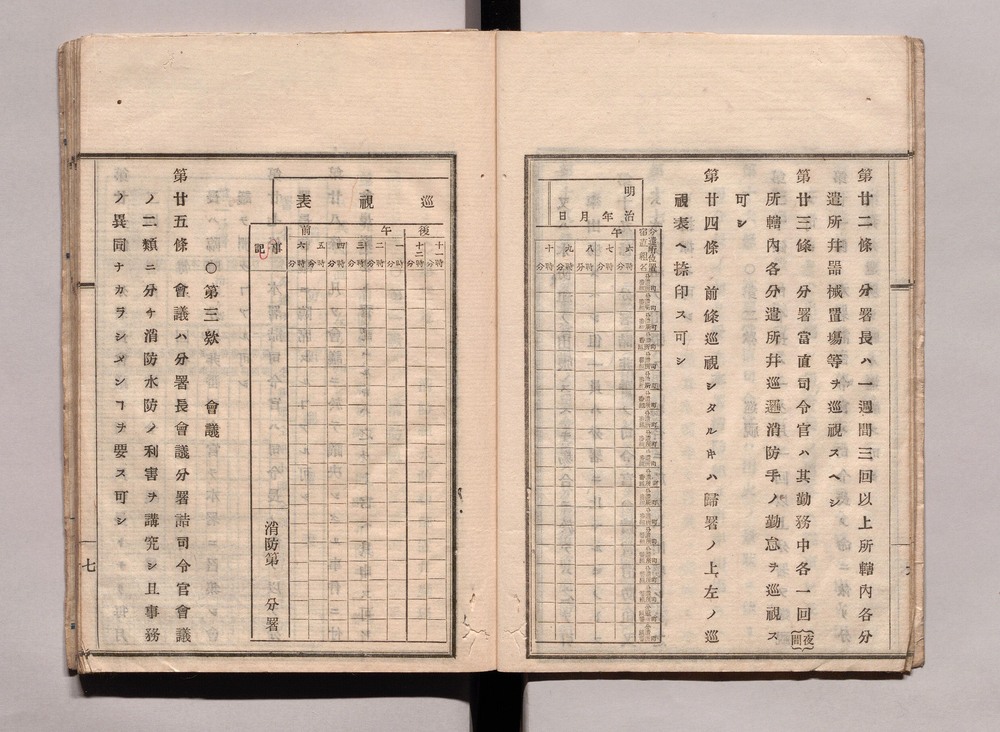 第廿二條　分署長ハ一週間三回以上所轄內各分
遣所幷噐械置塲等ヲ巡視スヘシ
第廿三條　分署當直司令官ハ其勤務中各一回夜間
所轄內各分遣所幷巡邏消防手ノ勤怠ヲ巡視ス
可シ
第廿四條　前條巡視シタルキハ歸署ノ上左ノ巡
視表ヘ捺印ス可シ
明治　年　月　日
分遣所位置
宿直祖名
午
六時　分
七時　分
八時　分
九時　分
十時　分
巡視表
後
十一時　分
十二時　分
午前
一時　分
二時　分
三時　分
四時　分
五時　分
六時　分
事記
消防第　分署
○第三欵　會議
第廿五條　會議ハ分署長會議分署詰司令官會議
ノ二類ニ分ケ消防水防ノ利害ヲ講究シ且事務
ノ異同ナカラシメンヿヲ要ス可シ
七